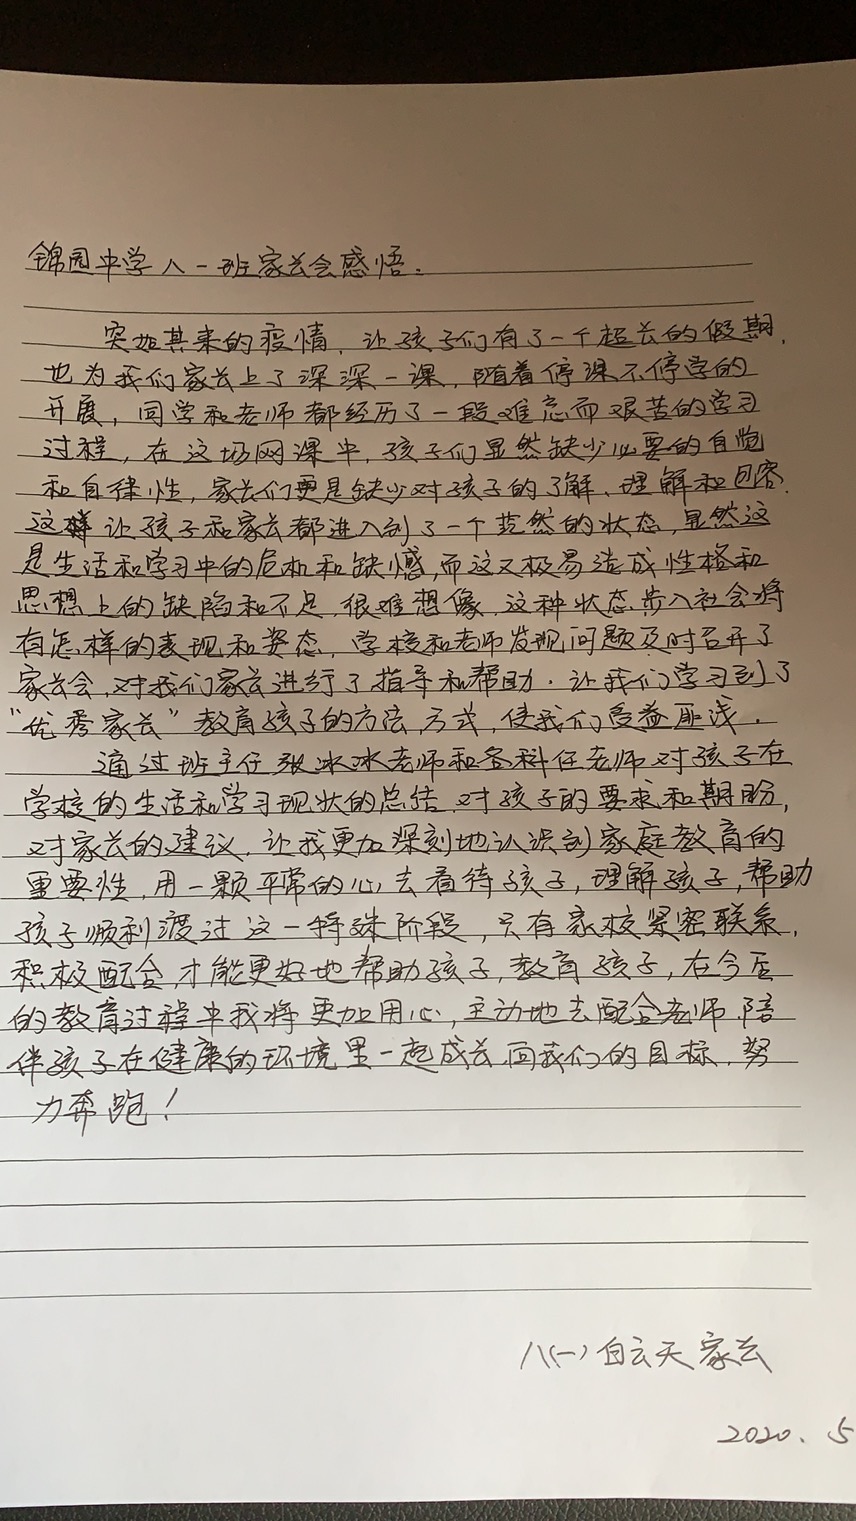 锦园中学八一班家长会感悟。
突如其来的疫情，让孩子们有了一个超长的假期，
也为我们家长上了深深一课，随着停课不停学的
开展，同学和老师都经历了一段难忘而艰苦的学习
过程，在这场网课中，孩子们显然缺少必要的自觉
和自律性，家长们更是缺少对孩子的了解、理解和包容，
这样让孩子和家长都进入到了一个茫然的状态，显然这
是生活和学习中的危机和缺憾，而这又极易造成性格和
思想上的缺陷和不足，很难想像，这种状态步入社会将
有怎样的表现和姿态，学校和老师发现问题及时召开了
家长会，对我们家长进行了指导和帮助．让我们学习到了
“优秀家长”教育孩子的方法，方式，使我们受益匪浅．
通过班主任张冰冰老师和各科任老师对孩子在
学校的生活和学习现状的总结，对孩子的要求和期盼，
对家长的建议，让我更加深刻地认识到家庭教育的
重要性，用一颗平常的心去看待孩子，理解孩子，帮助
孩子顺利渡过这一特殊阶段，只有家校紧密联系，
积极配合，才能更好地帮助孩子，教育孩子，在今后
的教育过程中我将更加用心，主动地去配合老师，陪
伴孩子在健康的环境里一起成长，向我们的目标，努
力奔跑！
八（一）白云天家长
2020、5